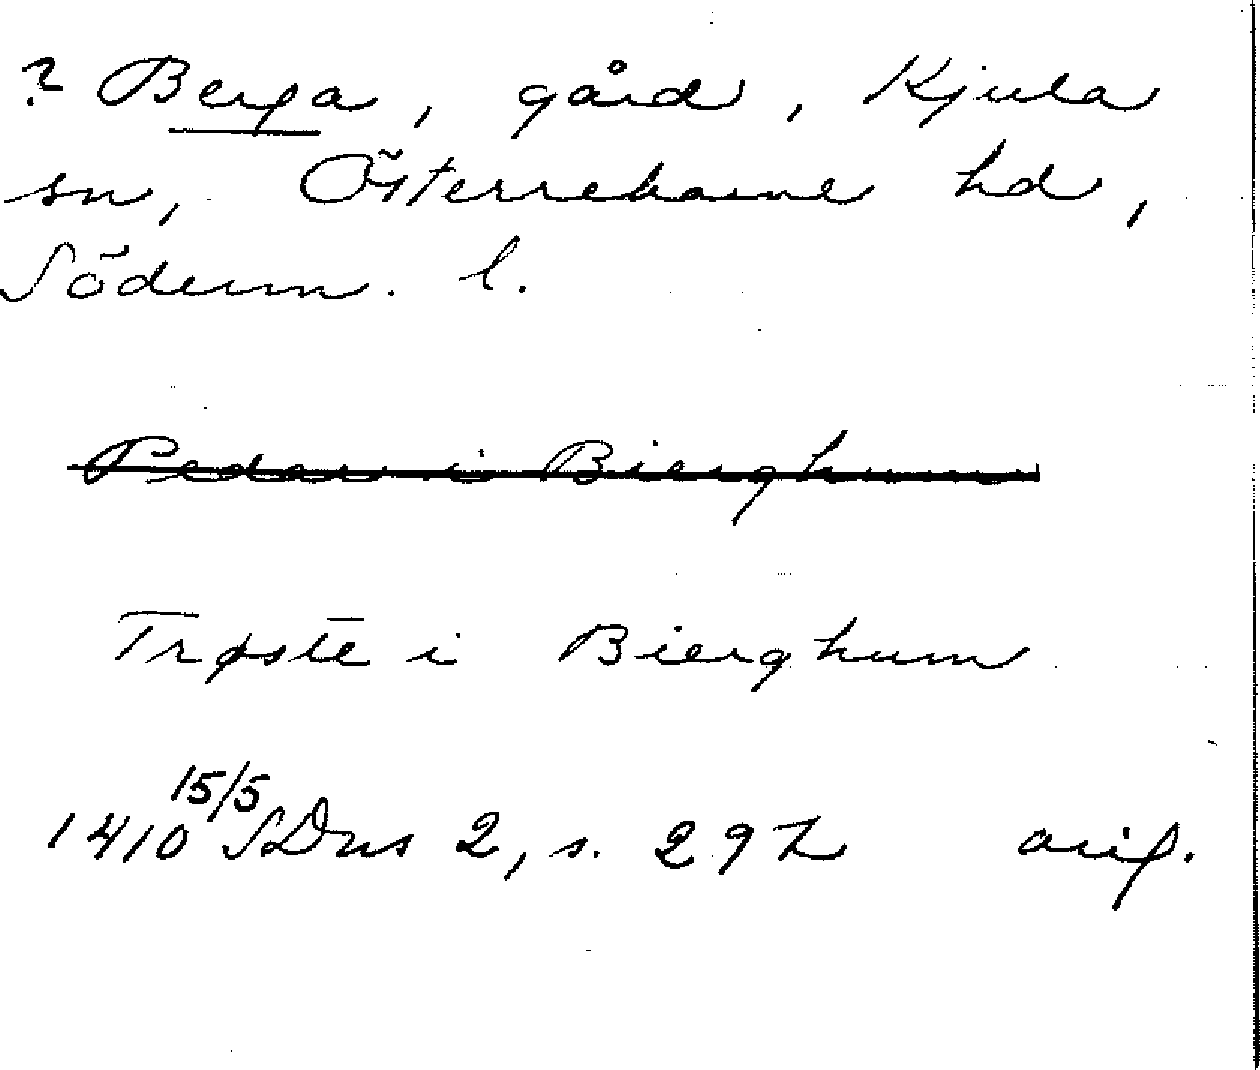 ? Berga, gård, Kjula
sn, Österrekarne hd,
Söderm. l.
Pedar i Bierghum
Trøste i Bierghum
1410 15/5 SDns 2, s. 297 orig.